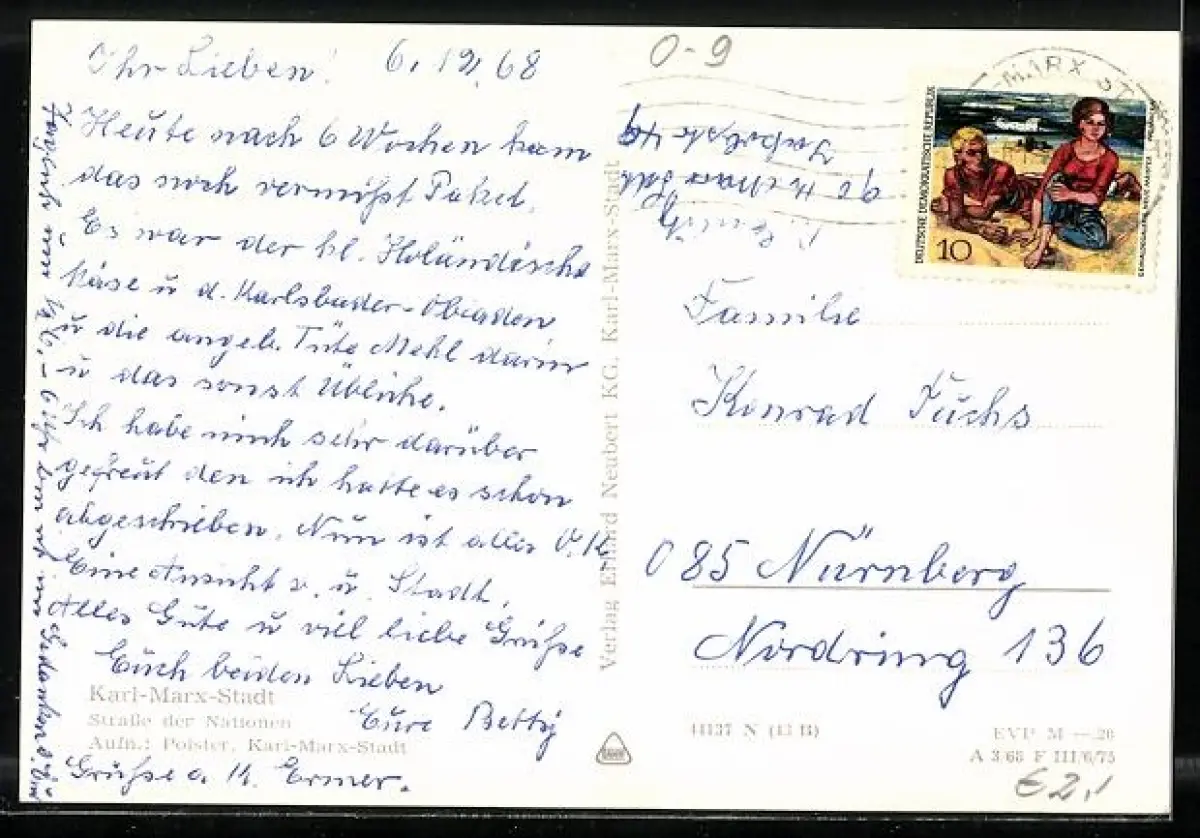 Ihr Lieben! 6. 12. 68
Heute nach 6 Wochen kam
das noch vermißt Paket.
Es war der hl. Holändische
Käse u d. Karlsbader-Obladen
u die angeb. Tüte Mehl darin
u das sonst Übliche.
Ich habe mich sehr darüber
gefreut den ich hatte es schon
abgeschrieben. Nun ist alles O.K.
Eine Ansicht v. u. Stadt.
Alles Gute u viel liebe Grüße
Euch beiden Lieben
Eure Betty
Grüße a. K. Ermer.
6 Uhr bin ich im Gedanken b. Euch
Karl-Marx-Stadt
Straße der Nationen
Aufn.: Polster, Karl-Marx-Stadt
Verlag Erhard Neubert KG, Karl-Marx-Stadt
0-9
-MARX-ST
DEUTSCHE DEMOKRATISCHE REPUBLIK
10
Familie
Konrad Fuchs
085 Nürnberg
Nordring 136
44137 N (13 B)
EVP M —.20
A 3/68 F III/6/75
€2,-